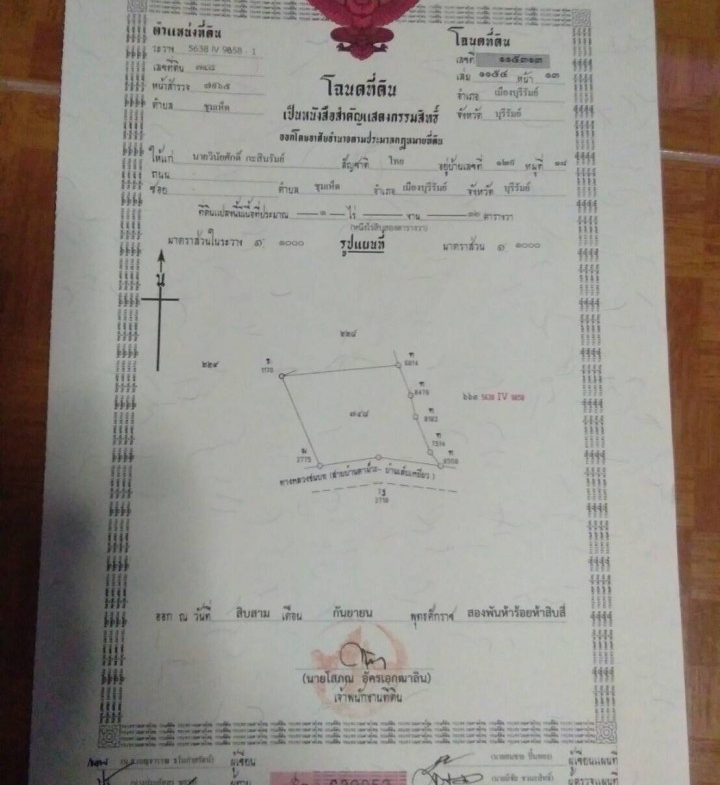 ตำแหน่งที่ดิน
ระวาง 5638 IV 9858 - 1
เลขที่ดิน ๗๔๘
หน้าสำรวจ ๗๕๖๕
ตำบล ชุมเห็ด
โฉนดที่ดิน
เลขที่ ๑๑๕๓๑๓
เล่ม ๑๑๕๔ หน้า ๑๓
อำเภอ เมืองบุรีรัมย์
จังหวัด บุรีรัมย์
โฉนดที่ดิน
เป็นหนังสือสำคัญแสดงกรรมสิทธิ์
ออกโดยอาศัยอำนาจตามประมวลกฎหมายที่ดิน
ให้แก่ นายวินัยศักดิ์ กะสินรัมย์ สัญชาติ ไทย อยู่บ้านเลขที่ ๑๒๙ หมู่ที่ ๑๘
ถนน
ซอย ตำบล ชุมเห็ด อำเภอ เมืองบุรีรัมย์ จังหวัด บุรีรัมย์
ที่ดินแปลงนี้มีเนื้อที่ประมาณ ๑ ไร่ งาน ๑๒ ตารางวา
(หนึ่งไร่สิบสองตารางวา)
มาตราส่วนในระวาง ๑: ๑๐๐๐ รูปแผนที่ มาตราส่วน ๑: ๑๐๐๐
น
๒๒๘
๒๒๙
5638 IV 9858
๗๔๘
2775
ทางหลวงชนบท
2718
ออก ณ วันที่ สิบสาม เดือน กันยายน พุทธศักราช สองพันห้าร้อยห้าสิบสี่
(นายโสภณ อัครเอกฒาลิน)
เจ้าพนักงานที่ดิน
ผู้เขียน
ผู้เขียนแผนที่
ผู้ตรวจแผนที่